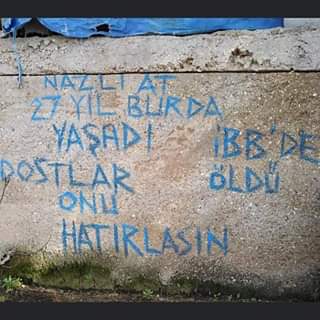 NAZLI AT
27 YIL BURDA
YAŞADI İBB'DE
DOSTLAR ÖLDÜ
ONU
HATIRLASIN